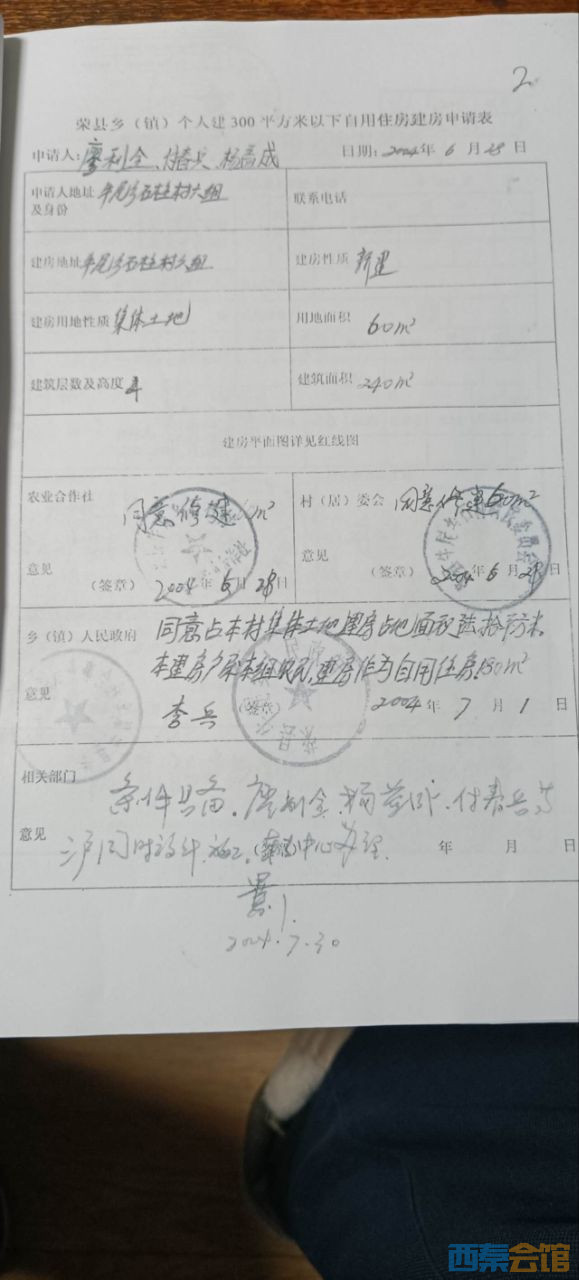 2
荣县乡（镇）个人建300平方米以下自用住房建房申请表
申请人：廖利全、付春兵、杨 成 日期：2004年6月28日
申请人地址及身份 石柱村六组 联系电话
建房地址 石柱村六组 建房性质 新建
建房用地性质 集体土地 用地面积 60m²
建筑层数及高度 4 建筑面积 240m²
建房平面图详见红线图
农业合作社 同意修建 m² 村（居）委会 同意修建60m²
意见 意见
（签章） 2004年6月28日 （签章） 2004年6月28日
乡（镇）人民政府 同意占本村集体土地建房占地面积陆拾平方米。
本建房户系本组农民，建房作为自用住房
意见 李兵 （签章） 2004年7月1日
相关部门 条件具备。廖利全、杨 、付春兵等
意见 三户同时设计、施工。 中心办理. 年 月 日
2004.7.30
西秦会馆